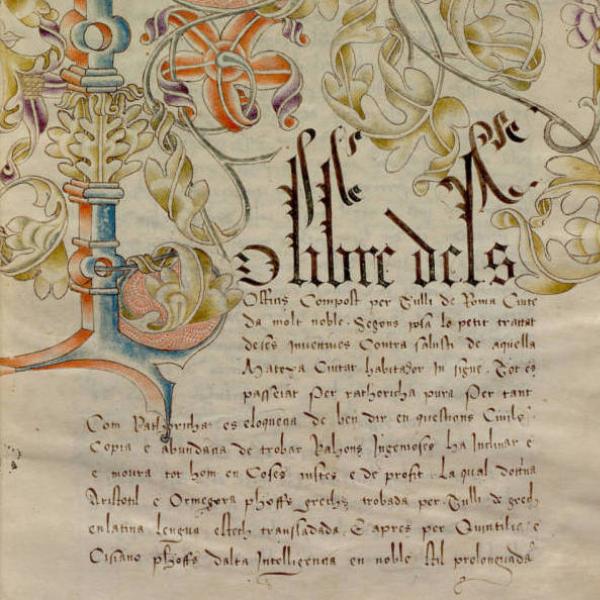 O libre dels
Officis Compost per Tulli de Roma Ciute
da molt noble. Segons posa lo petit tractat
de ses inuectiues Contra salusti de aquella
Matexa Ciutat habitador Tot es
passeiat Per rathoricha pura Per tant
Com Rathoricha es eloquencia de ben dir en questions Ciuils
Copia e abundancia de trobar Rahons Ingenioses ha Inclinar e
e moura tot hom en Coses iustes e de profit. La qual dotrina
Aristotil e Ormegora phosffs grechs trobada per Tulli de grech
en latina lengua estech transladada. E apres per Quintilia e
phosffs dalta Intelligencia en noble stil prolongada